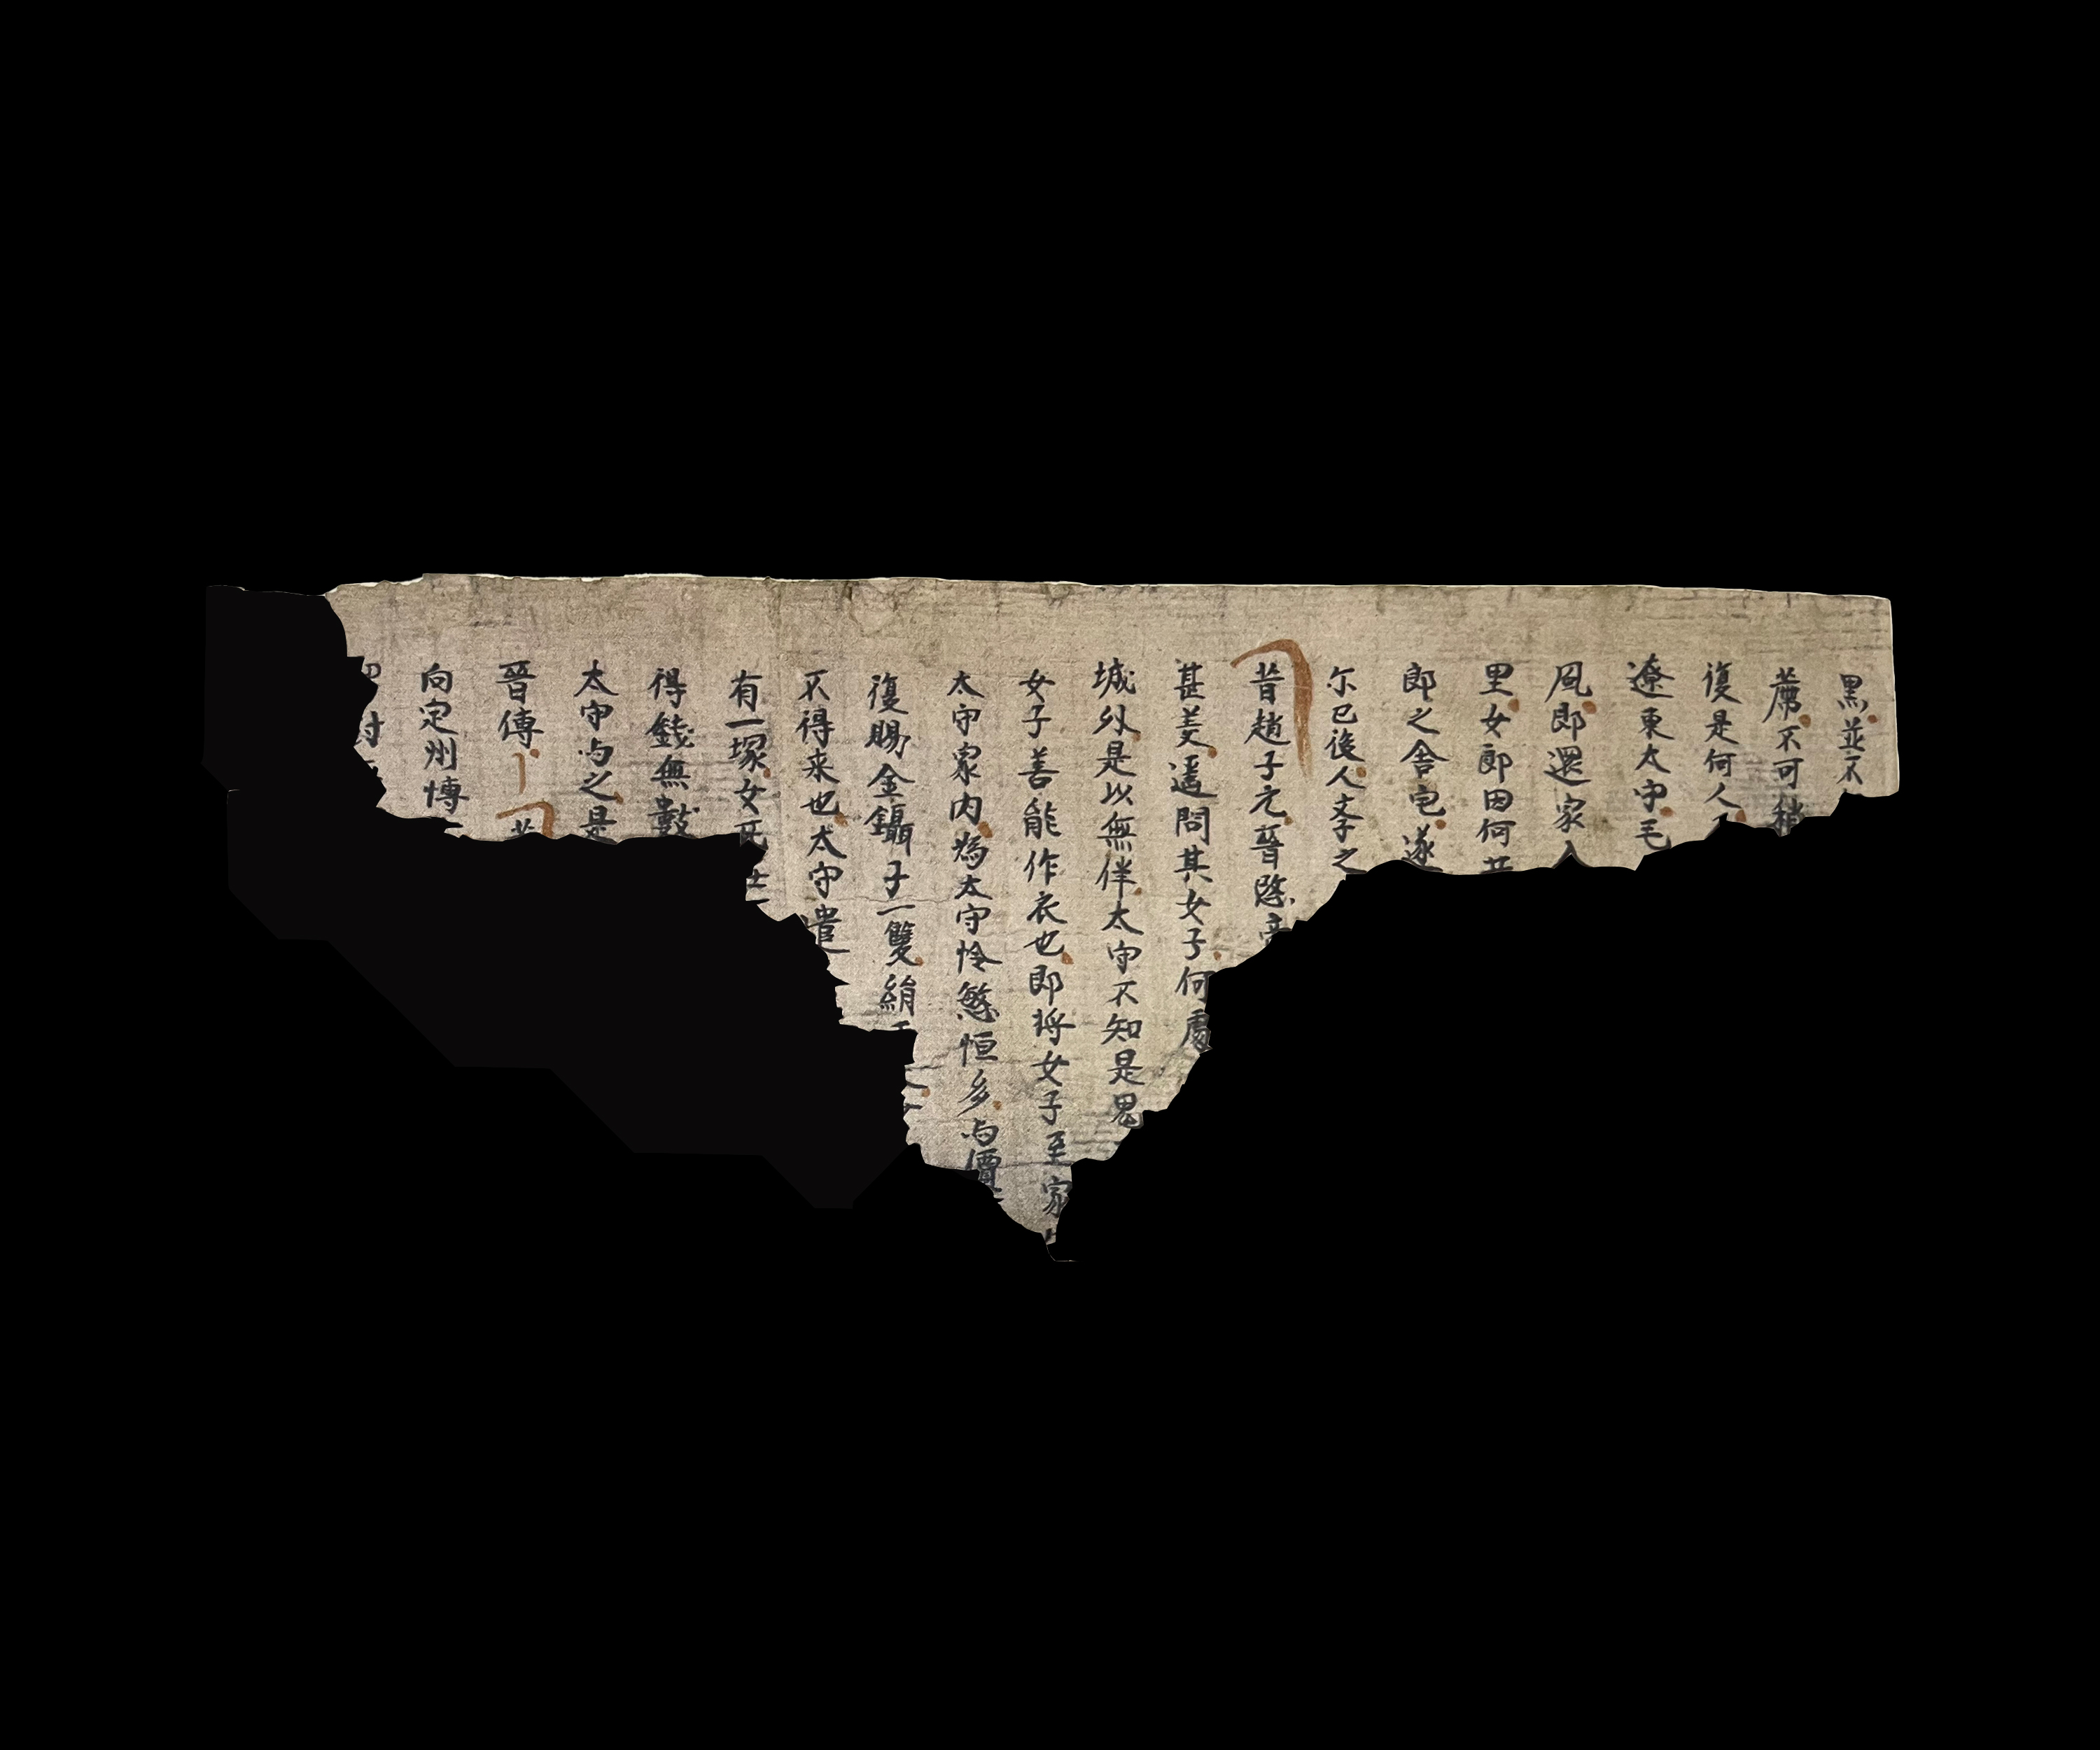 黒並不
薦不可稍
復是何人
遼東太守毛
風郎還家入
里女郎因何
郎之舍宅遂
尓已後人李之
昔趙子元晉愍帝
甚羙遥問其女子何處
城外是以無伴太守不知是鬼
女子善能作衣也即将女子至家
太守家内為太守怜愍恒多与價
復賜金鑷子一雙絹
不得来也太守遣
有一塚女
得錢無數
太守与之是
晉傳
向定州博